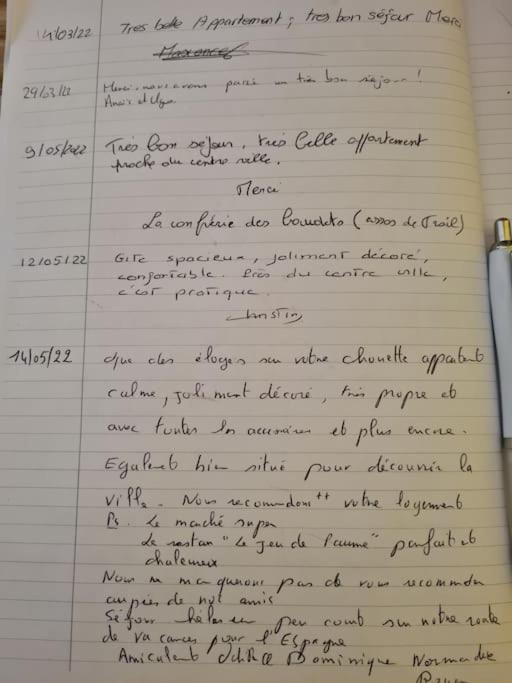 14/03/22 Très belle Appartement, très bon séjour Merci
29/03/22 Merci, nous avons passé un très bon séjour!
Anaïs et
9/05/2022 Très bon séjour, très belle appartement
proche du centre ville.
Merci
La confrérie des (assos de Trail)
12/05/22 Gite spacieux, joliment décoré,
confortable. Près du centre ville,
c'est pratique.
14/05/22 Que des éloges sur votre chouette appartent
calme, joliment décoré, très propre et
avec toutes les accessoires et plus encore.
Egalent bien situé pour découvrir la
ville. Nous recommdons++ votre logement
Ps. Le marché super
Le restau "Le jeu de Paume" parfait et
chaleureux
Nous ne manquerons pas de vous recommder
auprès de nos amis
Séjour hélas un peu court sur notre route
de vacances pour l'Espagne
Amicalent Dominique Normandie